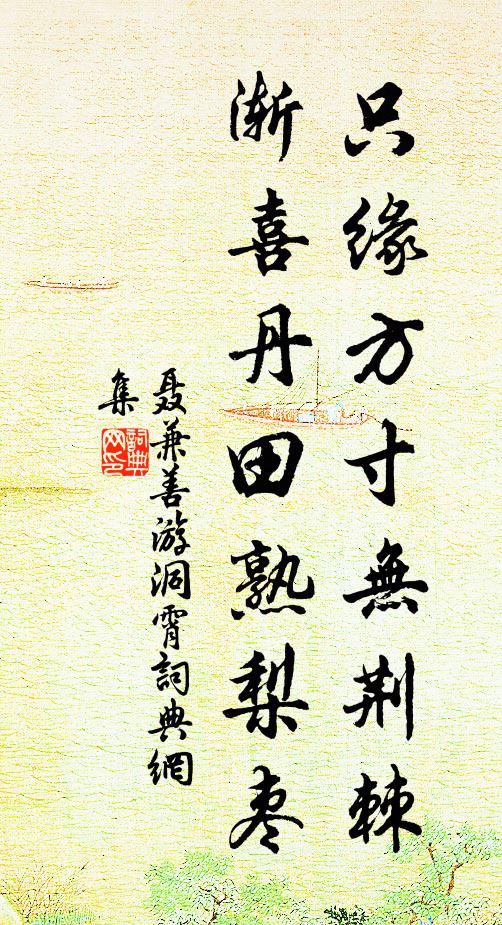 只緣方寸無荆棘
渐喜丹田熟梨枣
聂兼善游洞霄詞典網
集
詞典
网印